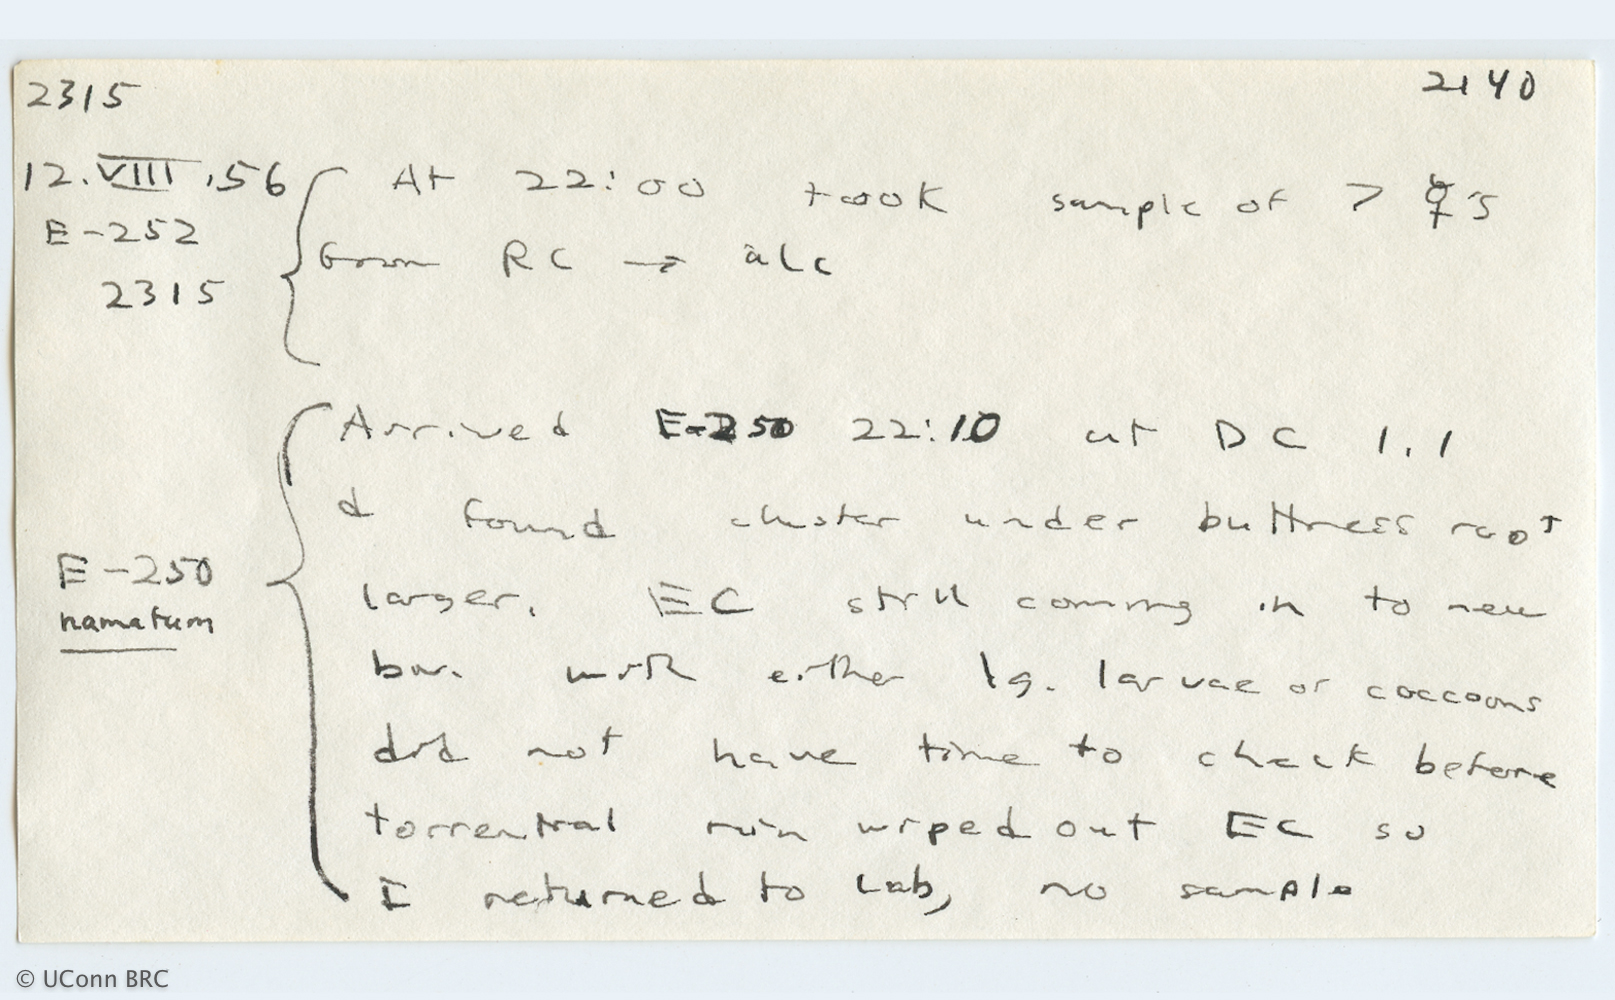 2315 2140
12.VIII.56 At 22:00 took sample of > ☿s
E-252 from RC → alc
2315
Arrived E-250 22:10 at DC 1.1
& found cluster under buttress root
E-250 larger. EC still coming in to new
hamatum
biv. with either lg. larvae or coccoons
did not have time to check before
torrential rain wiped out EC so
I returned to Lab, no sample
© UConn BRC